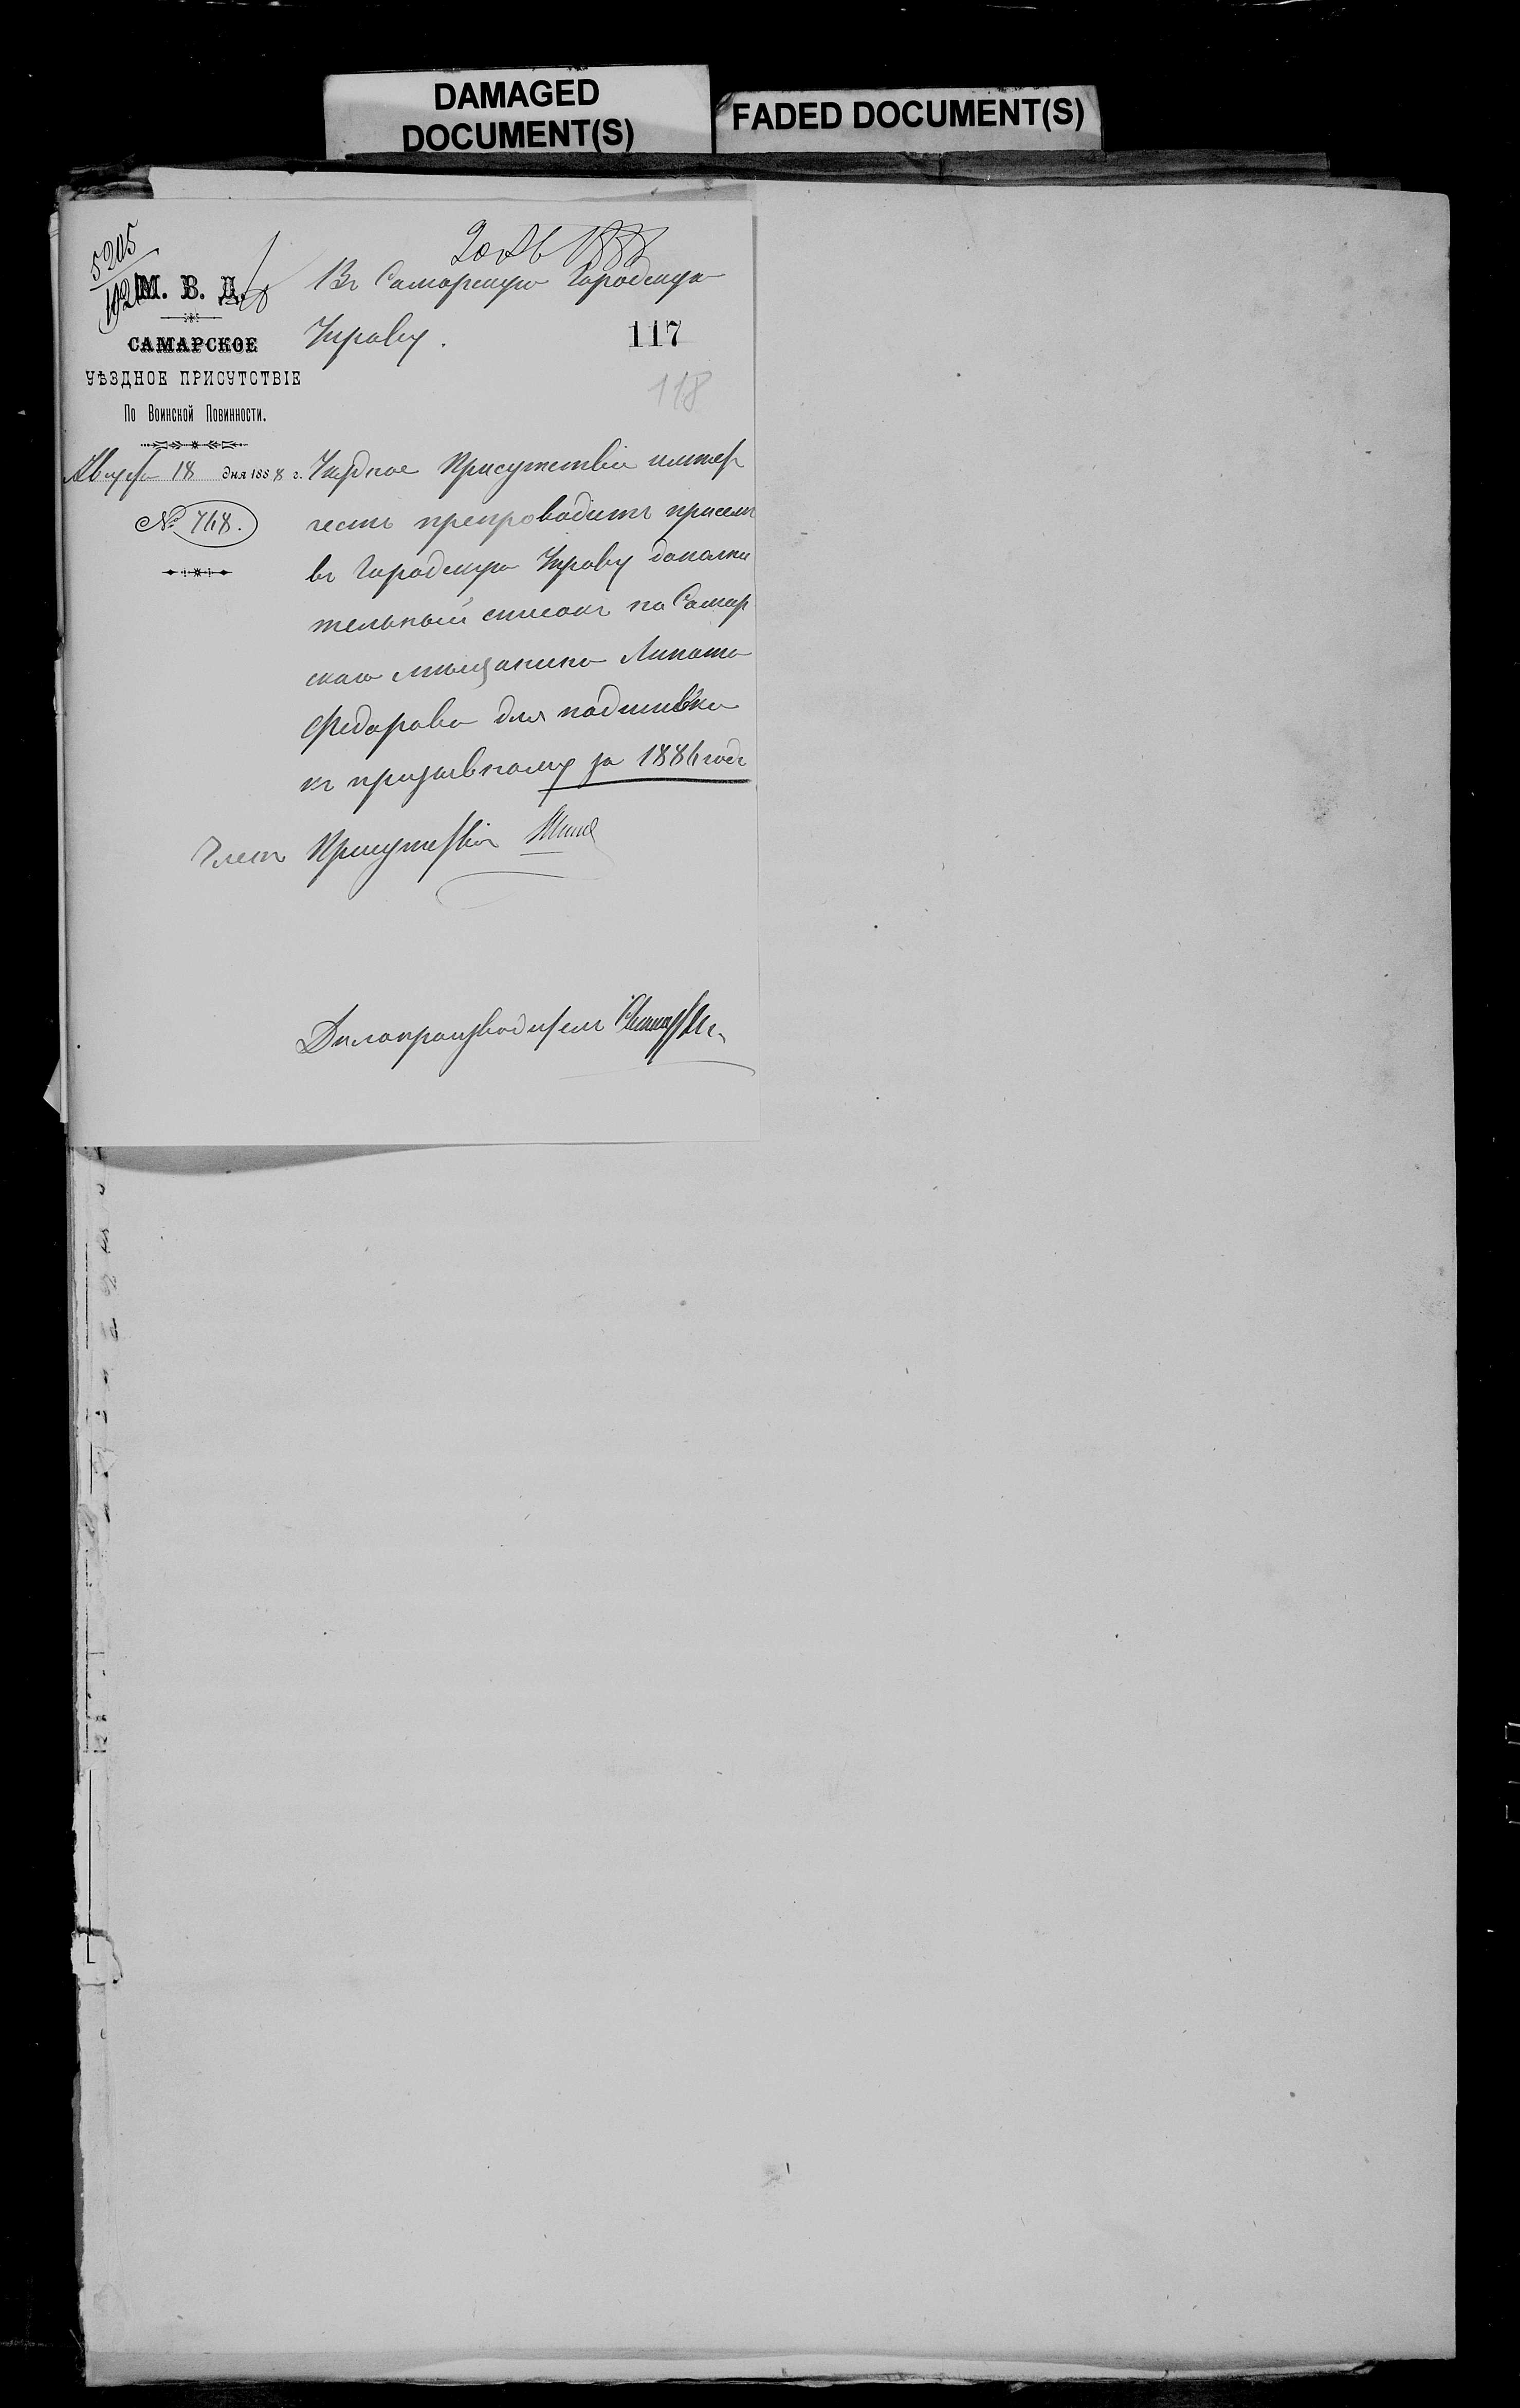 DAMAGED
DOCUMENT(S)
FADED DOCUMENT(S)
5205
20 Ав 1888
М. В. Д.
САМАРСКОЕ
УѢЗДНОЕ ПРИСУТСТВІЕ
По Воинской Повинности.
Август 18 дня 1888 г.
№ 748.
Въ Самарскую Городскую
Управу.
117
118
Уѣздное Присутствіе имѣет
честь препроводить при семъ
въ Городскую Управу дополни
тельный списокъ на Самар
скаго мѣщанина Липата
Федорова для подшивки
къ призывному за 1886 годъ
Членъ Присутствія
Дѣлопроизводитель